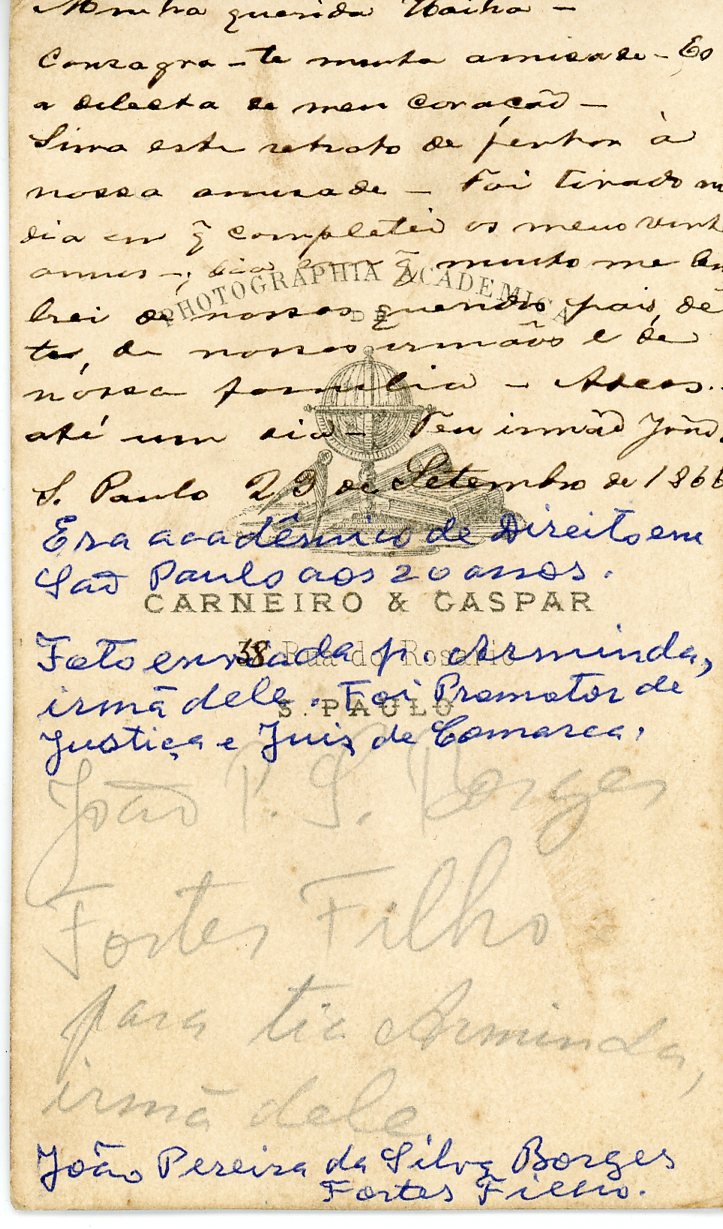 Minha querida
Consagro-te muita amisade - És
a dilecta de meu coração -
Sirva este retrato de penhor à
nossa amisade - Foi tirado no
dia em q̃ completei os meus vint
annos -; dia em q̃ muito me lem
PHOTOGRAPHIA ACADEMICA
DE
brei de nossos queridos pais, de
ti, de nossos irmãos e de
nossa familia - Adeos..
até um dia - Teu irmão João.
S. Paulo 23 de Setembro de 1866
Era acadêmico de Direito em
São Paulo aos 20 anos.
CARNEIRO & GASPAR
Foto enviada p. Arminda,
38 Rua do Rosario
irmã dele. Foi Promotor de
S. PAULO
Justiça e Juis de Comarca.
João P. S. Borges
Fortes Filho
para tia Arminda,
irmã dele
João Pereira da Silva Borges
Fortes Filho.